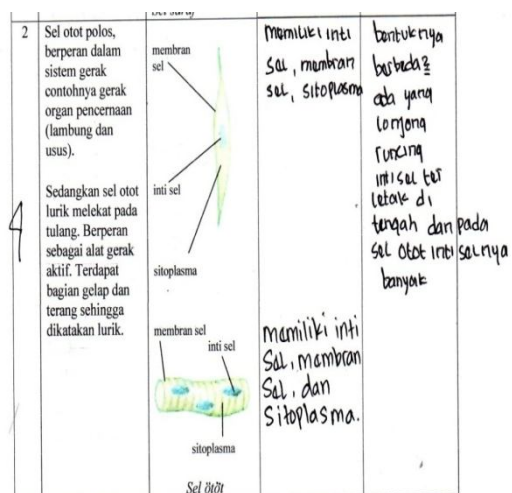 Sel saraf
2
Sel otot polos,
berperan dalam
sistem gerak
contohnya gerak
organ pencernaan
(lambung dan
usus).
Sedangkan sel otot
lurik melekat pada
tulang. Berperan
sebagai alat gerak
aktif. Terdapat
bagian gelap dan
terang sehingga
dikatakan lurik.
4
membran
sel
inti sel
sitoplasma
membran sel
inti sel
sitoplasma
Sel otot
Memiliki inti
sel, membran
sel, sitoplasma
Memiliki inti
sel, membran
sel, dan
sitoplasma.
bentuknya
berbeda2
ada yang
lonjong
runcing
inti sel ter
letak di
tengah dan pada
sel otot inti selnya
banyak